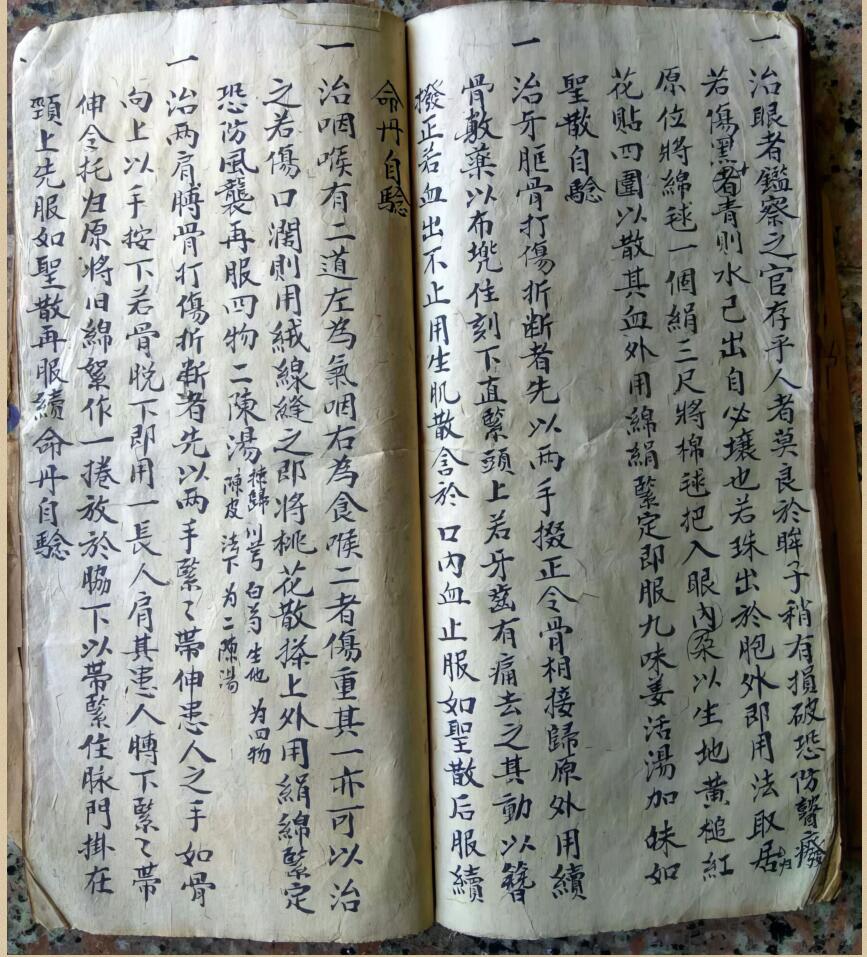 一治眼者鑑察之官存乎人者莫良於眸子稍有損破恐防瞽癈
若傷黑者青則水已出自必壞也若珠出於胞外即用法取居
原位將綿毬一個絹三尺將棉毬把入眼內以生地黃槌紅
花貼四圍以散其血外用綿絹緊定即服九味姜活湯加妹如
聖散自驗
一治牙框骨打傷折断者先以两手掇正令骨相接歸原外用續
骨敷藥以布兠住刻下直緊頭上若牙齒有痛去之其動以簪
撥正若血出不止用生肌散含於口內血止服如聖散后服續
命丹自驗
一治咽喉有二道左為氣咽右為食喉二者傷重其一亦可以治
之若傷口濶則用絨線縫之即將桃花散搽上外用絹綿緊定
恐防風襲再服四物二陳湯
歸川芎白芍生地為四物
陳皮法下为二陳湯
一治两肩膊骨打傷折断者先以两手緊〻帶伸患人之手如骨
向上以手按下若骨脫下即用一長人肩其患人膊下緊〻帶
伸令托归原將旧綿絮作一捲放於脇下以帶緊住脉門掛在
頸上先服如聖散再服續命丹自驗